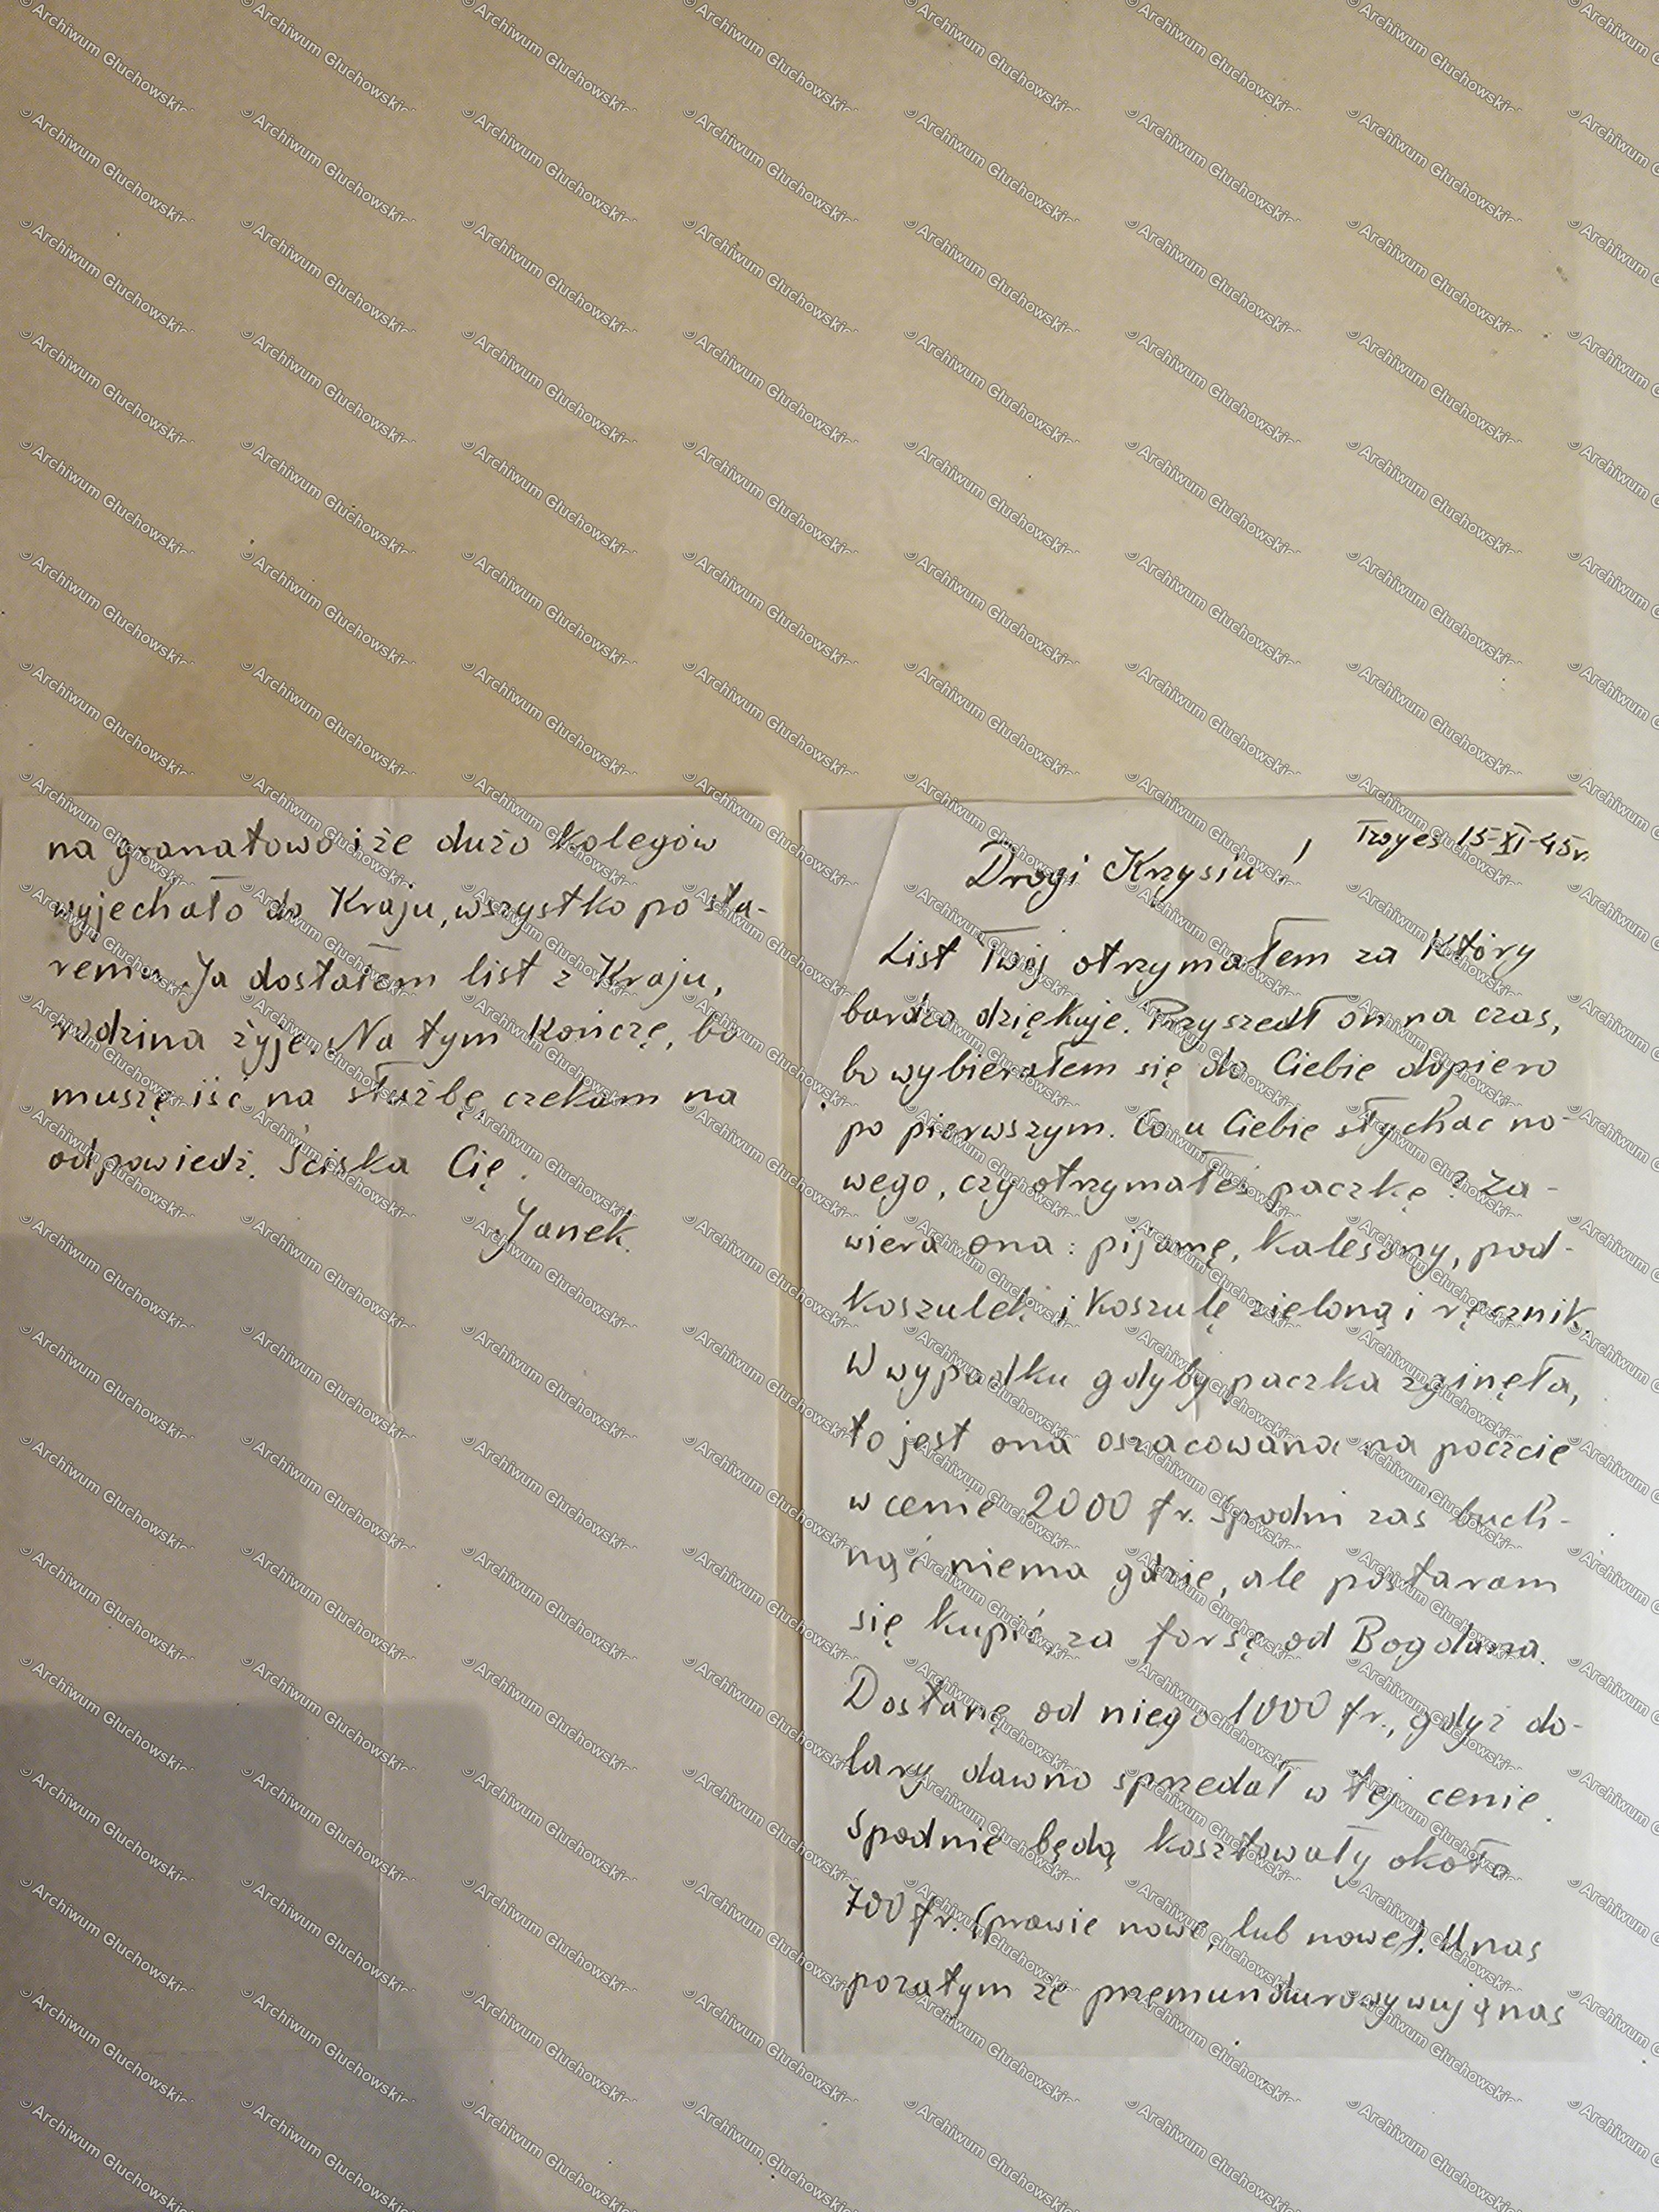 Troyes 15-XI-45r.
Drogi Krzysiu!
List Twój otrzymałem za który
bardzo dziękuje. Przyszedł on na czas,
bo wybierałem się do Ciebie dopiero
po pierwszym. Co u Ciebie słychać no-
wego, czy otrzymałeś paczkę? Za-
wiera ona: pijamę, kalesony, pod-
koszulek i koszulę zieloną i ręcznik.
W wypadku gdyby paczka zginęła,
to jest ona oszacowana na poczcie
w cenie 2000 fr. Spodni zaś buch-
nąć niema gdzie, ale postaram
się kupić za forsę od Bogdana.
Dostanę od niego 1000 fr., gdyż do-
lary dawno sprzedał w tej cenie.
Spodnie będą kosztowały około
700 fr. (prawie nowe, lub nowe). U nas
pozatym że przemundurowywują nas
na granatowo i że dużo kolegów
wyjechało do Kraju, wszystko po sta-
remu. Ja dostałem list z Kraju,
rodzina żyje. Na tym kończę, bo
muszę iść na służbę, czekam na
odpowiedź. Ściska Cię.
Janek.
© Archiwum Głuchowskich